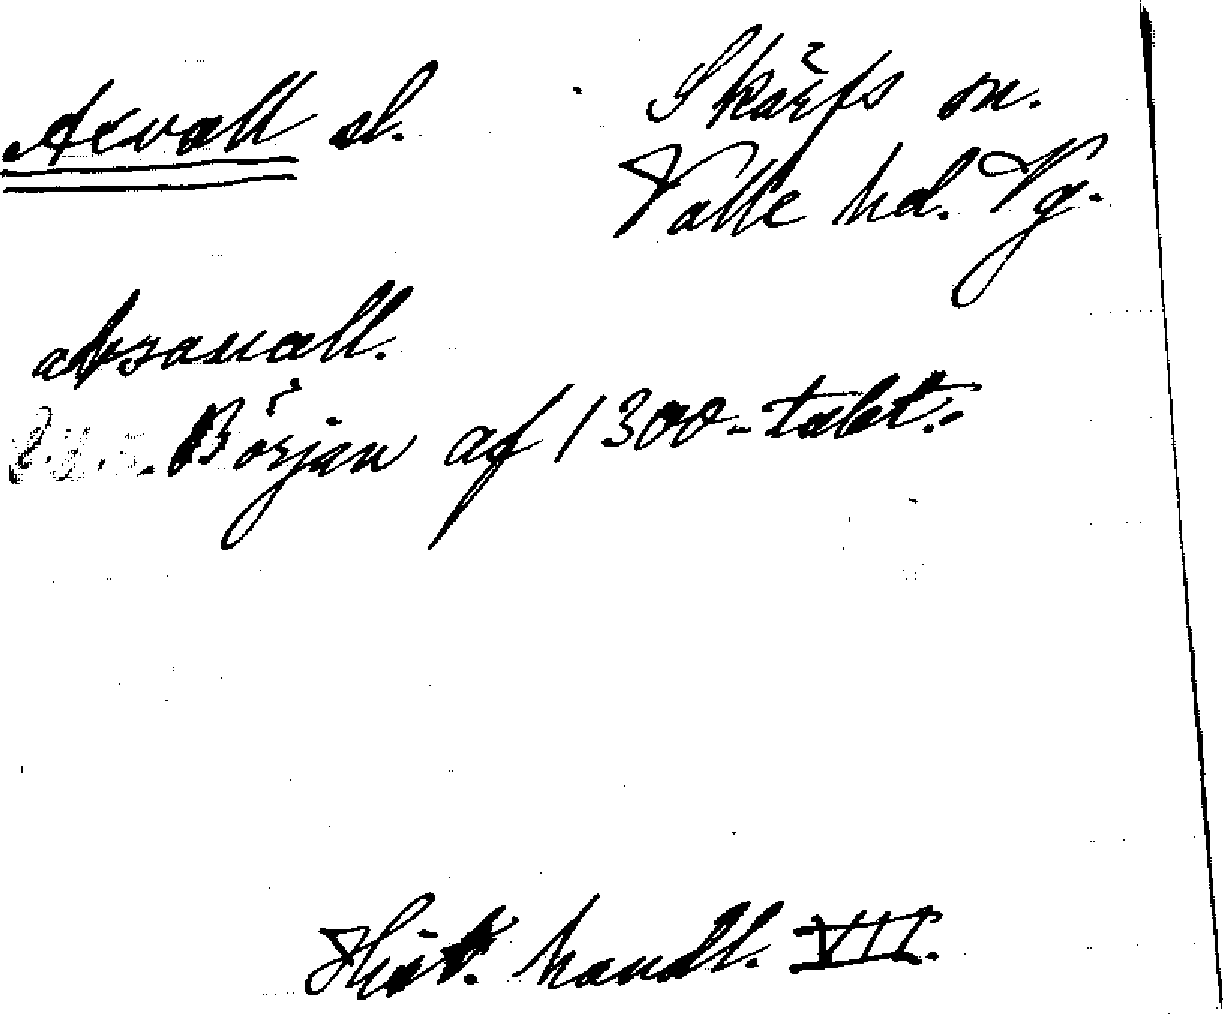 Axvall sl. Skärfs sn.
Valle hd. Vg.
Axauall.
Början af 1300-talet.
Hist. handl. VII.